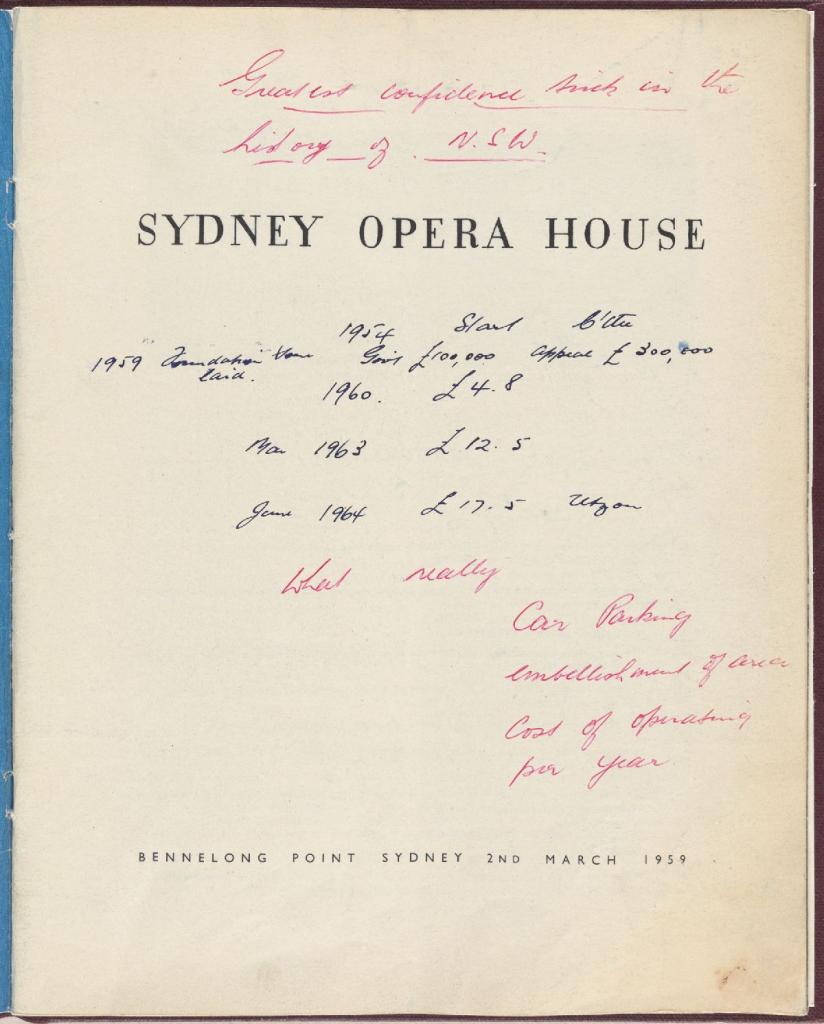 Greatest confidence trick in the
history of N.S.W.
SYDNEY OPERA HOUSE
1954 Start C'ttee
1959 Foundation Stone Govt £100,000 Appeal £300,000
laid.
1960. £4.8
Mar 1963 £12.5
June 1964 £17.5 Utzon
What really
Car Parking
embellishment of area
Cost of operating
per year
BENNELONG POINT SYDNEY 2ND MARCH 1959